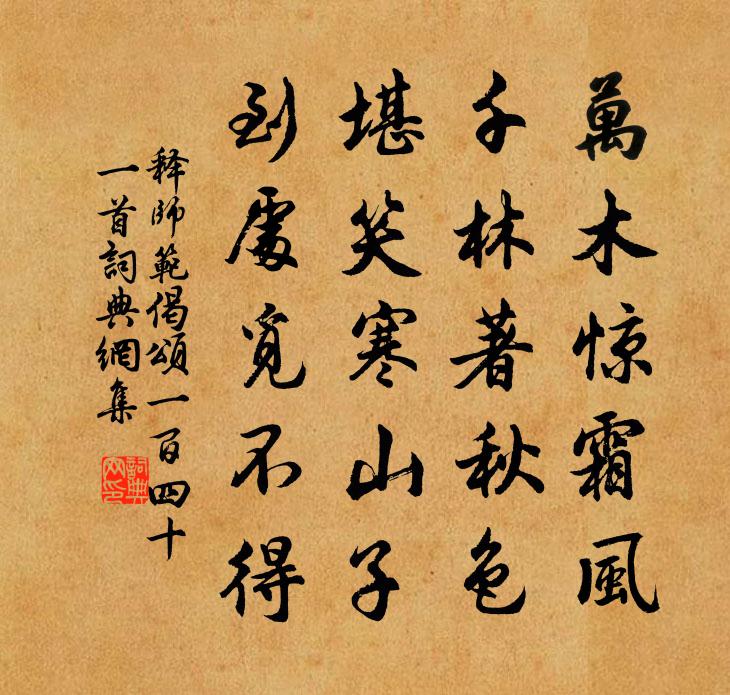 萬木惊霜風
千林著秋色
堪笑寒山子
到處覓不得
释師範偈頌一百四十
一首詞典網集
詞典
网印